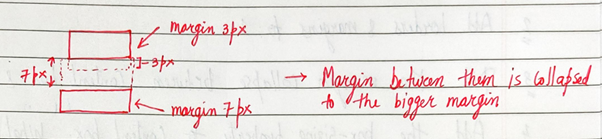 margin 3px
3px
7px
margin 7px
→ Margin between them is collapsed
to the bigger margin